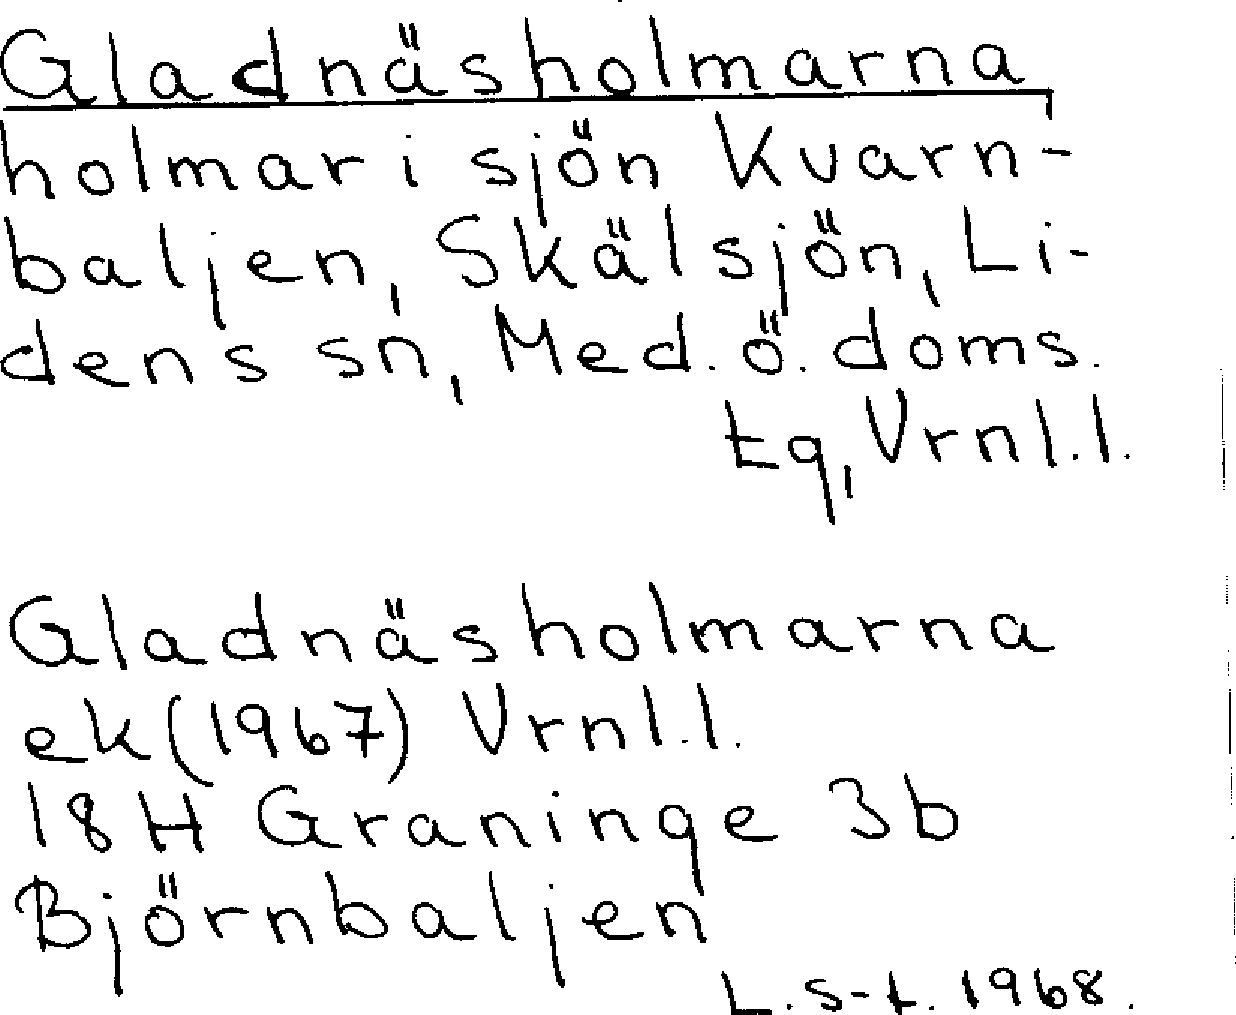 Gladnäsholmarna,
holmar i sjön Kvarn-
baljen, Skälsjön, Li-
dens sn, Med. ö. doms.
tq, Vrnl.l.
Gladnäsholmarna
ek (1967) Vrnl.l.
18 H Graninge 3b
Björnbaljen
L. S-t. 1968.